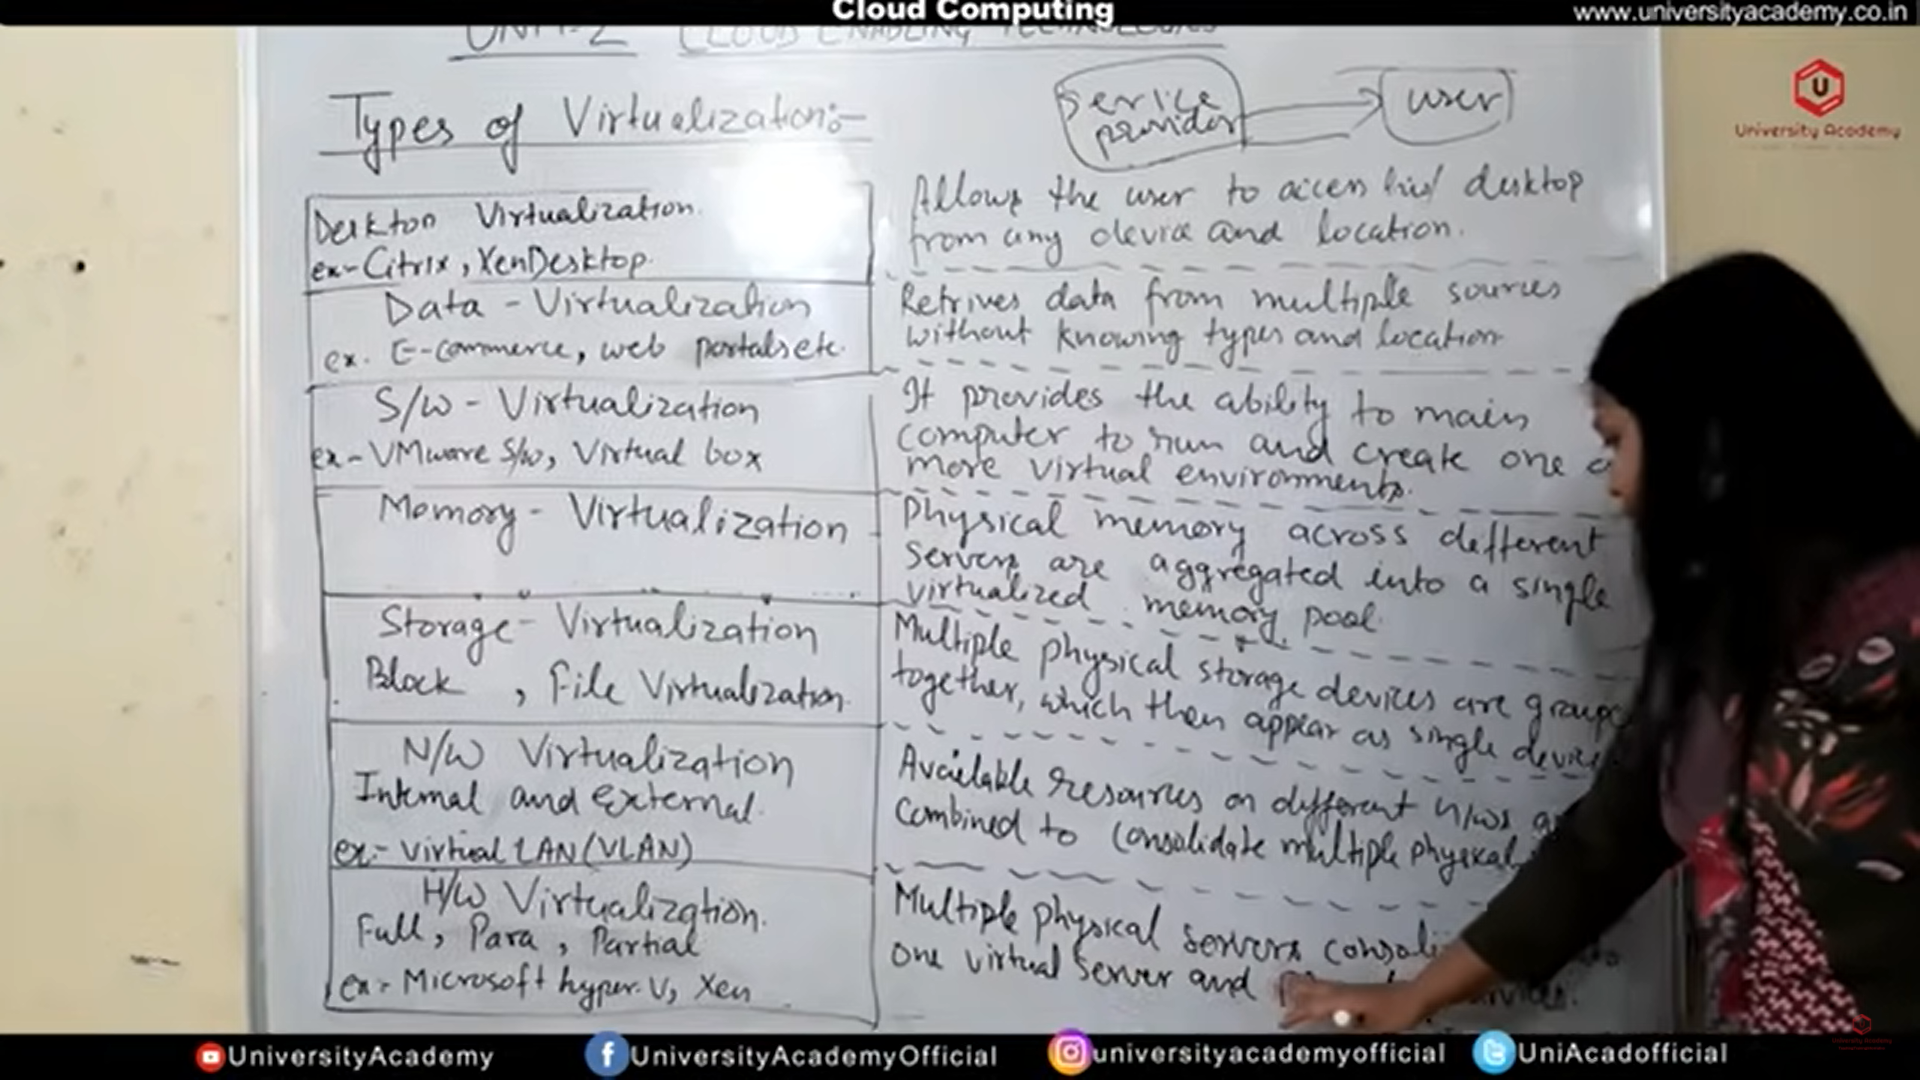 Cloud Computing
www.universityacademy.co.in
UNIT-2 CLOUD ENABLING TECHNOLOGIES
U
University Academy
Types of Virtualization:-
Service
provider
user
Desktop Virtualization.
ex- Citrix, XenDesktop.
Allows the user to access his/ desktop
from any device and location.
Data - Virtualization
ex. E-commerce, web portals etc.
Retrives data from multiple sources
without knowing types and location
S/W - Virtualization
ex- VMware S/w, Virtual box
It provides the ability to main
computer to run and create one
more virtual environments.
Memory - Virtualization
Physical memory across defferent
servers are aggregated into a single
virtualized memory pool.
Storage - Virtualization
Block , File Virtualization.
Multiple physical storage devices are
together, which then appear as single device
N/W Virtualization
Internal and External.
ex:- Virtual LAN (VLAN)
Available resources on different n/ws
combined to consolidate multiple physical
H/W Virtualization.
Full, Para, Partial
ex- Microsoft hyper. V, Xen
Multiple physical servers
one virtual server and
UniversityAcademy
UniversityAcademyOfficial
universityacademyofficial
UniAcadofficial